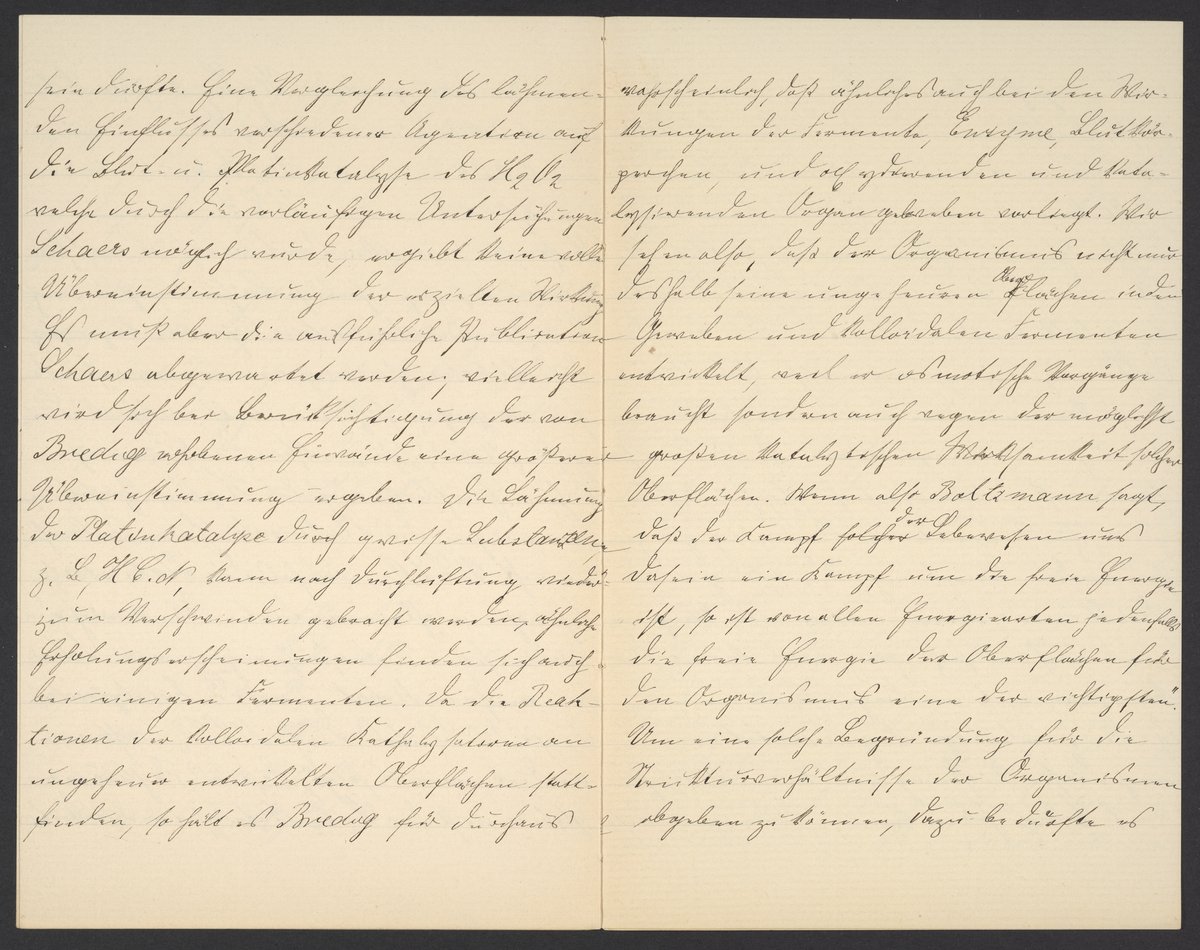 sein dürfte. Eine Vergleichung des lähmen-
den Einflusses verschiedener Agentien auf
die Blut- u. Platinkatalyse des H2O2
welche durch die vorläufigen Untersuchungen
Schaers möglich wurde, ergiebt keine volle
Übereinstimmung der erzielten Wirkung.
Es muß aber die ausführliche Publication
Schaers abgewartet werden; vielleicht
wird sich bei Berücksichtigung der von
Bredig erhobenen Einwände eine größere
Übereinstimmung ergeben. Die Lähmung
der Platinkatalyse durch gewisse Substanzen,
z. B. HCN, kann nach Durchlüftung wieder
zum Verschwinden gebracht werden, ähnliche
Erholungserscheinungen finden sich auch
bei einigen Fermenten. Da die Reak-
tionen der kolloidalen Kathalysatoren an
ungeheuer entwickelten Oberflächen statt-
finden, so hält es Bredig für durchaus
wahrscheinlich, daß ähnliches auch bei den Wir-
kungen der Fermente, Enzyme, Blutkör-
perchen, und oxydierenden und kata-
lysierenden Organgeweben vorliegt. Wir
sehen also, daß der Organismus nicht nur
deshalb seine ungeheuren Oberflächen in den
Geweben und kolloidalen Fermenten
entwickelt, weil er osmotische Vorgänge
braucht sondern auch wegen der möglichst
großen katalytischen Wirksamkeit solcher
Oberflächen. Wenn also Boltzmann sagt,
daß der Kampf solcher der Lebewesen ums
Dasein ein Kampf um die freie Energie
ist, so ist von allen Energiearten jedenfalls
die freie Energie der Oberflächen für
den Organismus eine der wichtigsten."
Um eine solche Begründung für die
Strukturverhältnisse der Organismen
abgeben zu können, dazu bedürfte es